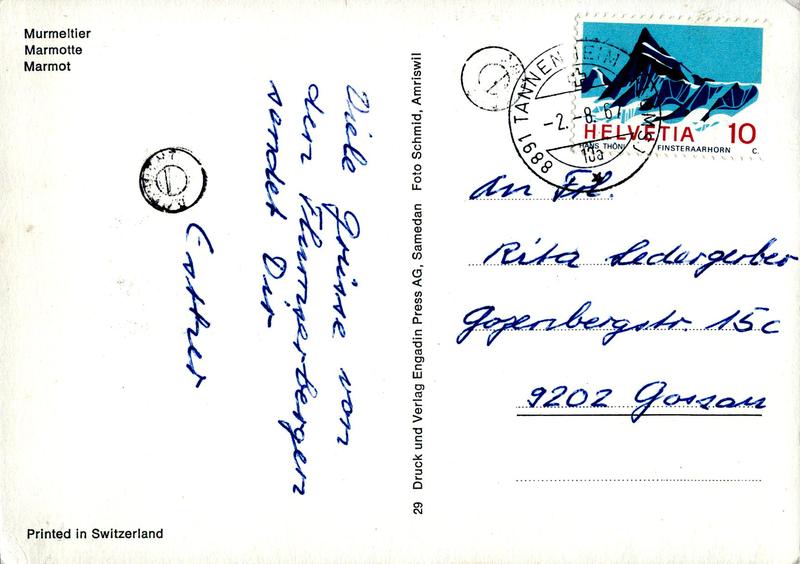 Murmeltier
Marmotte
Marmot
Viele Grüsse von
den Flumserbergen
sendet Dir
Esther
Printed in Switzerland
29 Druck und Verlag Engadin Press AG, Samedan Foto Schmid, Amriswil
8891 TANNENHEIM
-2.-8.67
13a
HELVETIA 10
HANS THÖNI FINSTERAARHORN C.
An Frl.
Rita Ledergerber
Gozenbergstr. 15c
9202 Gossau